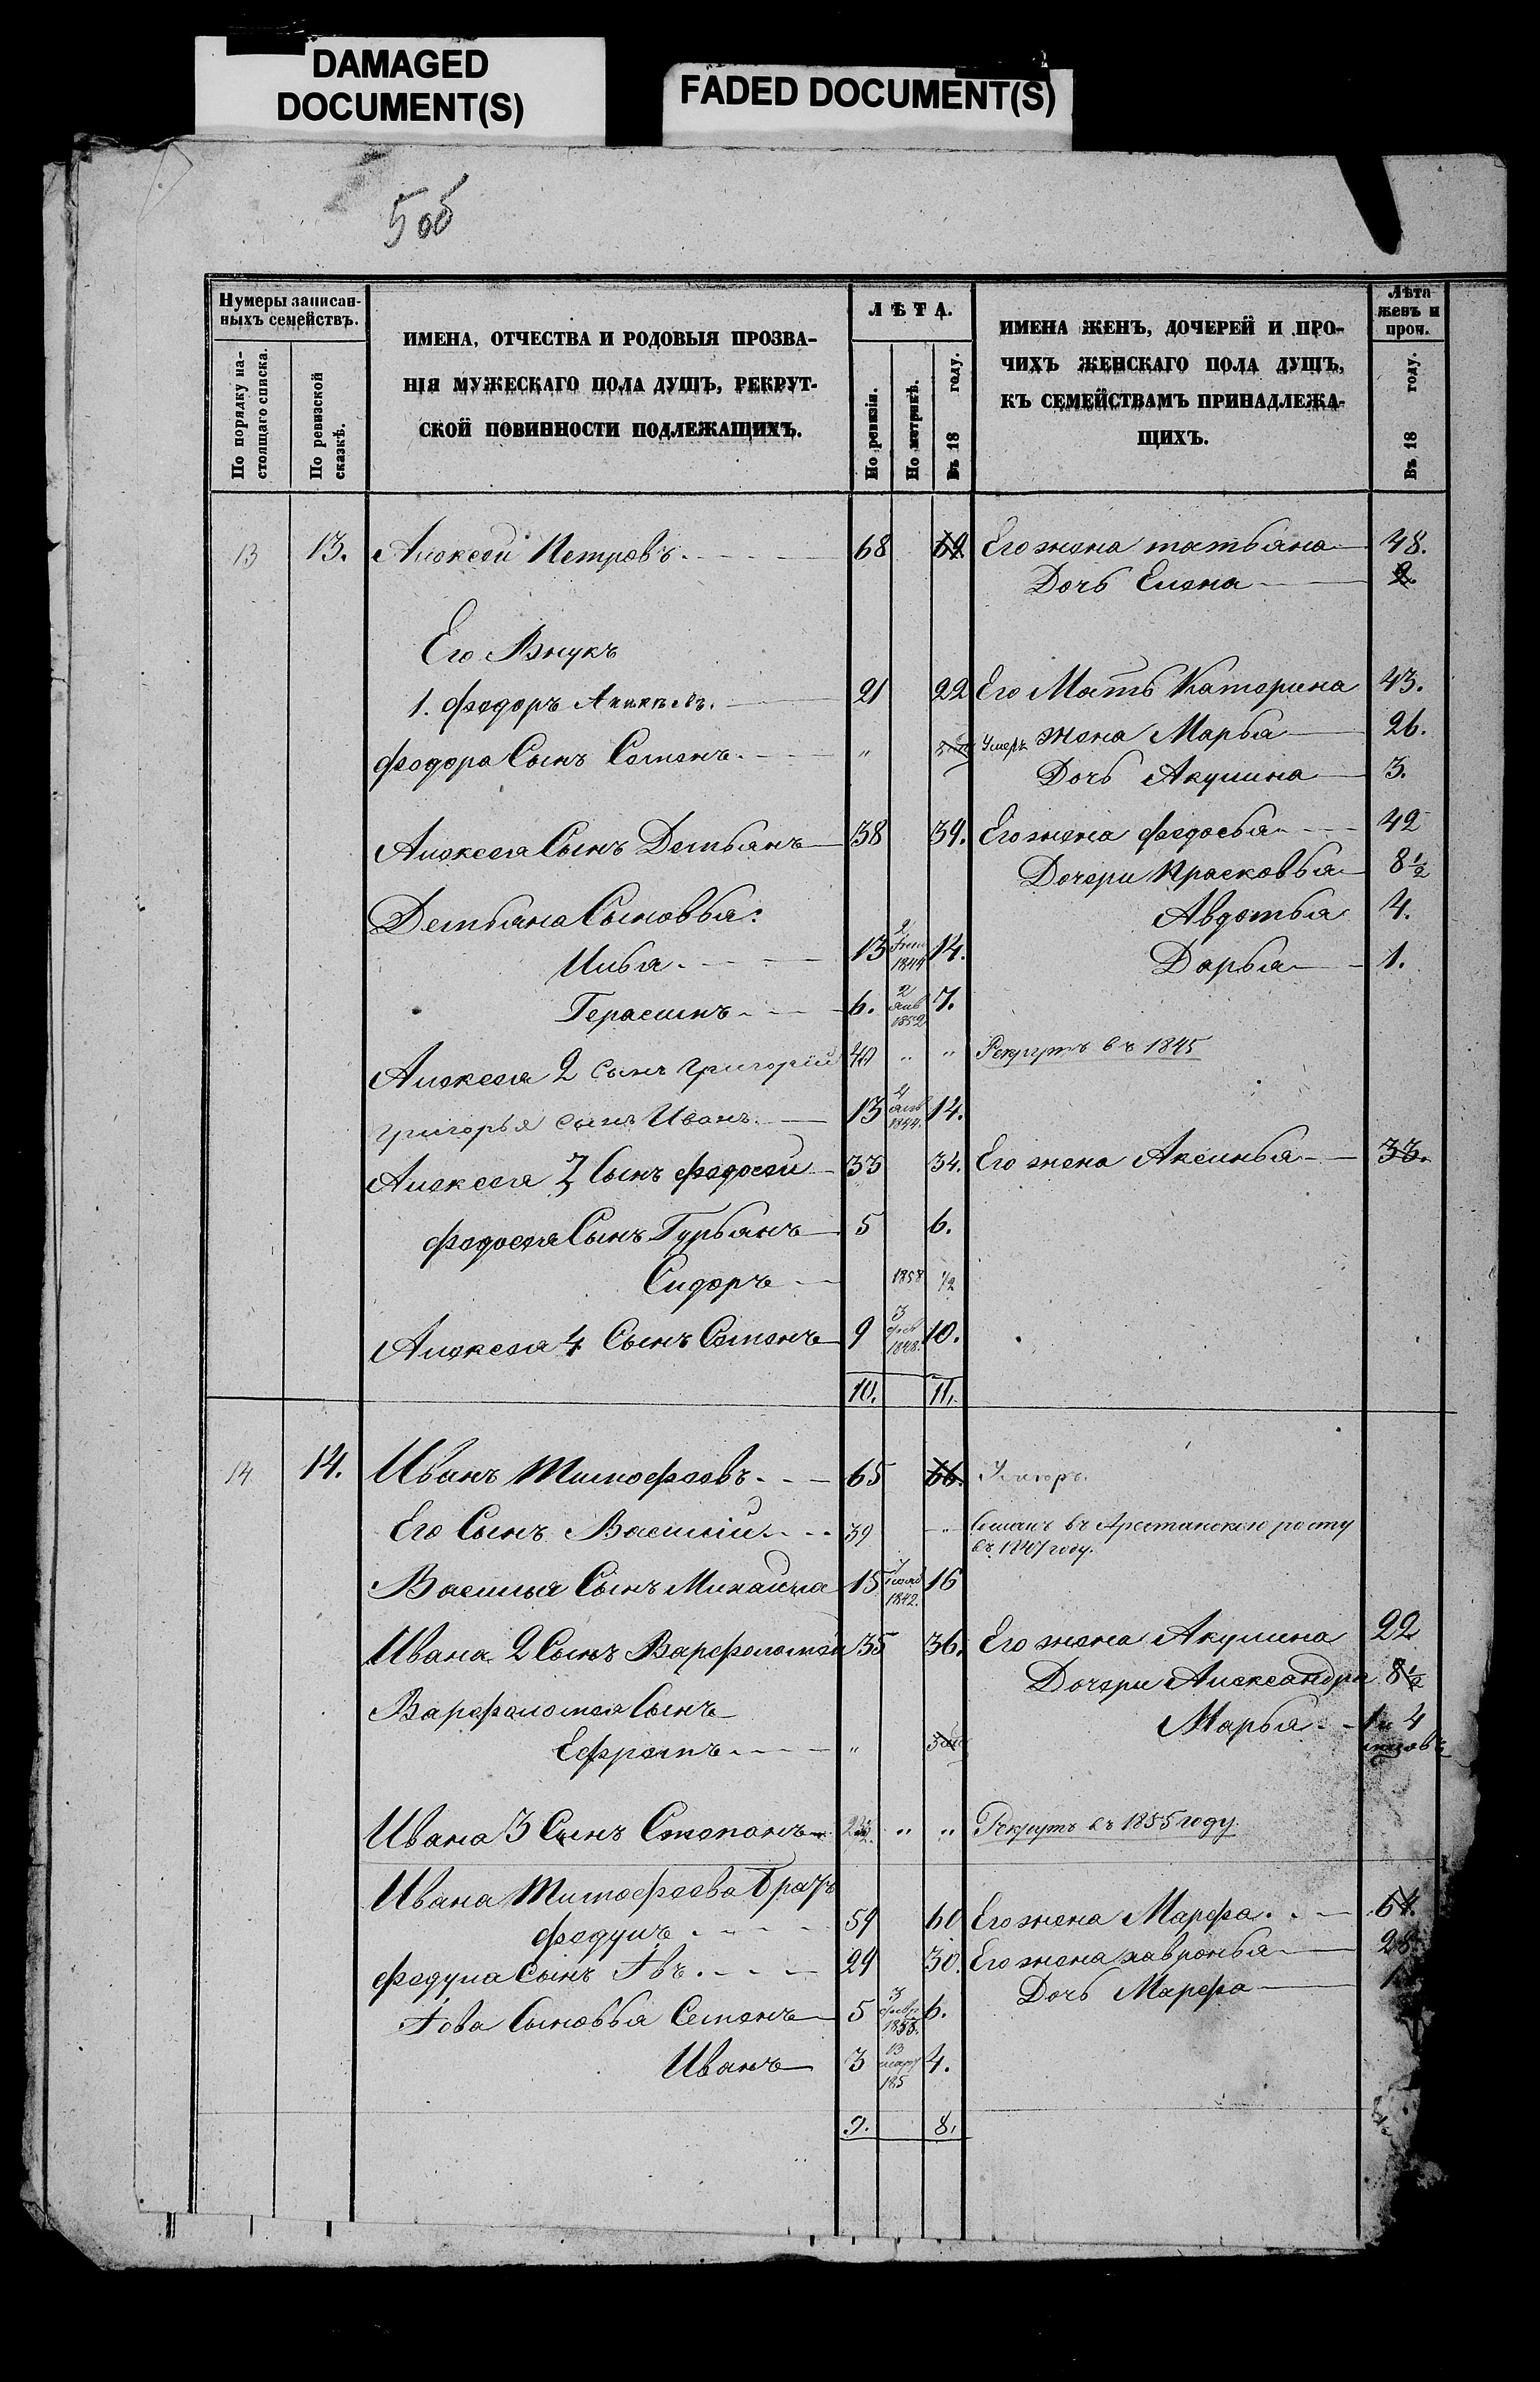 DAMAGED
DOCUMENT(S)
FADED DOCUMENT(S)
5 об
Нумеры записан-
ныхъ семействъ.
По порядку на-
стоящаго списка.
По ревизской
сказкѣ.
ИМЕНА, ОТЧЕСТВА И РОДОВЫЯ ПРОЗВА-
НІЯ МУЖЕСКАГО ПОЛА ДУШЪ, РЕКРУТ-
СКОЙ ПОВИННОСТИ ПОДЛЕЖАЩИХЪ.
ЛѢТА.
По ревизіи.
По метрикѣ.
Въ 18 году.
ИМЕНА ЖЕНЪ, ДОЧЕРЕЙ И ПРО-
ЧИХЪ ЖЕНСКАГО ПОЛА ДУШЪ,
КЪ СЕМЕЙСТВАМЪ ПРИНАДЛЕЖА-
ЩИХЪ.
Лѣта
женъ и
проч.
Въ 18 году.
13 13. Алексей Петровъ 68 69 Его жена татьяна 48.
Дочь Елена 2.
Его Внукъ
1. федоръ 21 22 Его Мать Катерина 43.
федора Сынъ Семенъ " Умеръ жена Марья 26.
Дочь Акулина 3.
Алексея Сынъ Демьянъ 38 39. Его жена федосья 42
Дочери Прасковья 8 1/2
Демьяна Сыновья: Авдотья 4.
Илья 13 2 1844 14. Дарья 1.
Герасимъ 6. 2 янв 1852 7.
Алексея 2 сынъ григорий 40 " " Рекрутъ въ 1845
григорья сынъ Иванъ 13 4 янв 1844. 14.
Алексея 3 Сынъ федосей 33 34. Его жена Аксинья 33.
федосея Сынъ Гурьянъ 5 6.
Сидоръ 1858 1/2
Алексея 4 Сынъ Семенъ 9 3 фев 1848. 10.
10. 11.
14 14. Иванъ Тимофеевъ 65 66. Умеръ
Его Сынъ Василий 39 " въ Арестанскою роту
въ 1847 году.
Василья Сынъ Михайла 15 7 нояб 1842. 16
Ивана 2 Сынъ Варфоломей 35 36. Его жена Акулина 22
Дочери Александра 8 1/2
Варфоломея Сынъ Марья 1 и 4
Ефремъ "
Ивана 3 Сынъ Степанъ " " Рекрутъ въ 1855 году.
Ивана Тимофеева братъ
федулъ 59 60 Его жена Марфа 61.
федула Сынъ Iвъ 29 30. Его жена хавронья 28
Дочь Марфа 1
Iова Сыновья Семенъ 5 3 февр 1853. 6.
Иванъ 3 13 март 185 4.
9. 8.